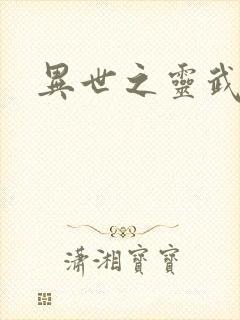 異世之靈武
瀟湘寶寶